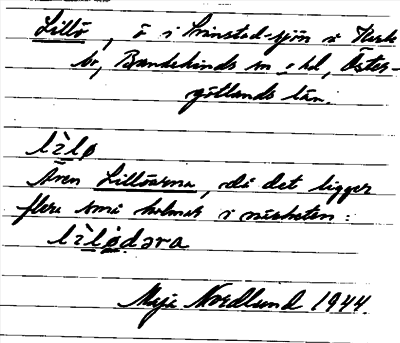 Lillö, ö i Svinstad-sjön i
sn, Bankekinds sn o hd, Öster-
götlands län.
lìlø
Även Lillöarna, då det ligger
flera små holmar i närheten:
lìlødəra
Maja Nordlund 1944.